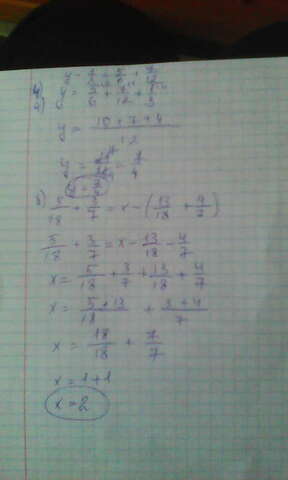 y - 1/3 = 5/6 + 7/12
y = 5/6 + 7/12 + 1/3
y = (10 + 7 + 4)/12
y = 21/12 = 7/4
б) 5/18 + 3/7 = x - (13/18 + 4/7)
5/18 + 3/7 = x - 13/18 - 4/7
x = 5/18 + 3/7 + 13/18 + 4/7
x = (5 + 13)/18 + (3 + 4)/7
x = 18/18 + 7/7
x = 1 + 1
x = 2